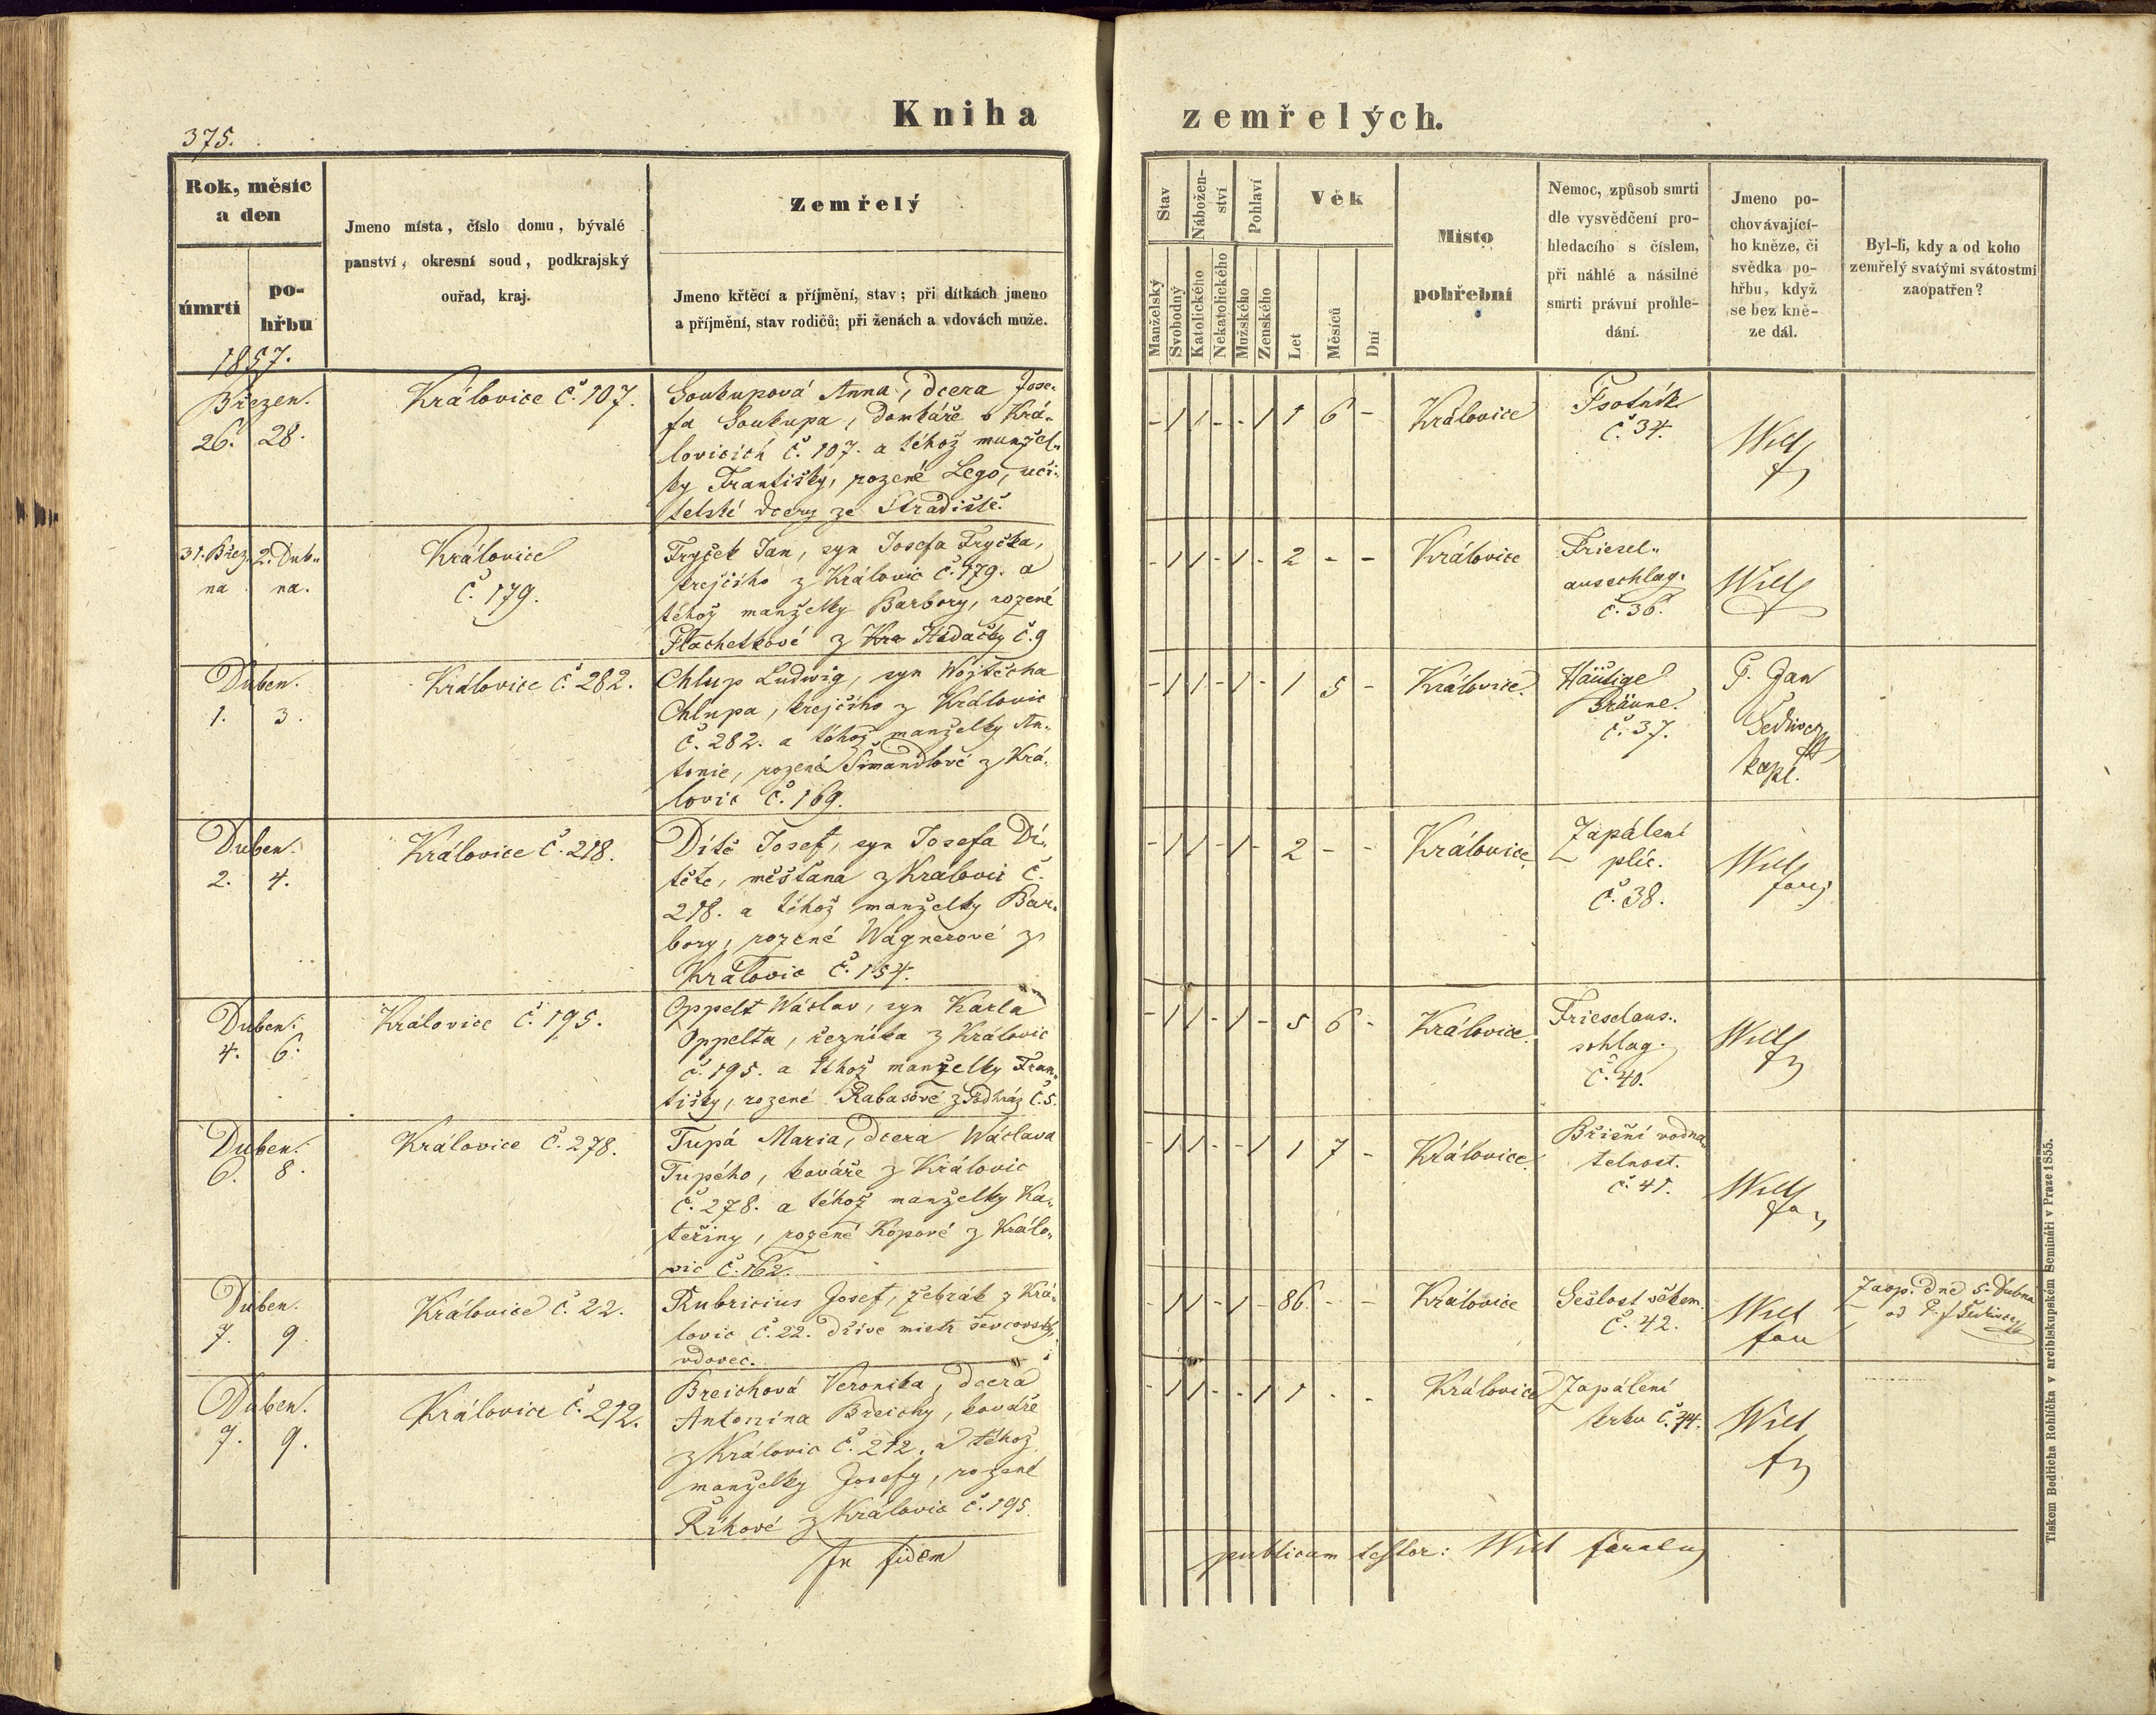 Kniha
zemřelých.
375.
Rok, měsíc
a den
úmrtí
po-
hřbu
Jmeno místa, číslo domu, bývalé
panství, okresní soud, podkrajský
ouřad, kraj.
Zemřelý
Jmeno křtěcí a příjmění, stav; při dítkách jmeno
a příjmění, stav rodičů; při ženách a vdovách muže.
Stav
Nábožen-
ství
Pohlaví
Věk
Manželský
Svobodný
Katolického
Nekatolického
Mužského
Ženského
Let
Měsíců
Dní
Místo
pohřební
Nemoc, způsob smrti
dle vysvědčení pro-
hledacího s číslem,
při náhlé a násilné
smrti právní prohle-
dání.
Jmeno po-
chovávající-
ho kněze, či
svědka po-
hřbu, když
se bez kně-
ze dál.
Byl-li, kdy a od koho
zemřelý svatými svátostmi
zaopatřen?
1857.
Březen.
26. 28.
Královice č. 107.
Soukupová Anna, dcera Jose-
fa Soukupa, domkáře v Krá-
lovicích č. 107. a téhož manžel-
ky Františky, rozené Lego, uči-
telské dcery ze Stradiště.
- 1 1 - - 1 1 6 -
Královice
Psotník
č. 34.
Will
31. Břez- 2. Dub-
na na.
Královice
č. 179.
Fryček Jan, syn Josefa Fryčka,
krejčího z Královic č. 179. a
téhož manželky Barbory, rozené
Plachetkové z Kra Hadačky č. 9
- 1 1 - 1 - 2 - -
Královice
Friesel-
ausschlag.
č. 36.
Will
Duben.
1. 3.
Královice č. 282.
Chlup Ludwig, syn Wojtěcha
Chlupa, krejčího z Královic
č. 282. a téhož manželky An-
tonie, rozené Šimandlové z Krá-
lovic č. 169.
- 1 1 - 1 - 1 5 -
Královice.
Häutige
Bräune.
č. 37.
P. Jan
Šedivec
kapl.
Duben.
2. 4.
Královice č. 218.
Dítě Josef, syn Josefa Dí-
těte, měšťana z Královic č.
218. a téhož manželky Bar-
bory, rozené Wagnerové z
Královic č. 154.
- 1 1 - 1 - 2 - -
Královice.
Zapálení
plic.
č. 38.
Will
Duben.
4. 6.
Královice č. 195.
Oppelt Wáclav, syn Karla
Oppelta, řezníka z Královic
č. 195. a téhož manželky Fran-
tišky, rozené Rabasové z Podhráz č. 5.
- 1 1 - 1 - 5 6 -
Královice.
Frieselaus-
schlag.
č. 40.
Will
Duben.
6. 8.
Královice č. 278.
Tupá Maria, dcera Wáclava
Tupého, kováře z Královic
č. 278. a téhož manželky Ka-
teřiny, rozené Kopové z Králo-
vic č. 162.
- 1 1 - - 1 1 7 -
Královice.
Břišní vodna-
telnost.
č. 41.
Will
Duben.
7. 9.
Královice č. 22.
Rubricius Josef, žebrák z Krá-
lovic č. 22. dříve mistr ševcovský,
vdovec.
- 1 1 - 1 - 86 - -
Královice
Sešlost věkem.
č. 42.
Will
far
Zaop. dne 5. Dubna
od P. J. Šedivec
Duben.
7. 9.
Královice č. 212.
Breichová Veronika, dcera
Antonína Breichy, kováře
z Královic č. 212. a téhož
manželky Josefy, rozené
Říhové z Královic č. 195.
- 1 1 - - 1 1 - -
Královice
Zapálení
krku č. 44.
Will
In fidem
publicam testor: Will farář
Tiskem Bedřicha Rohlíčka v arcibiskupském Semináři v Praze 1855.